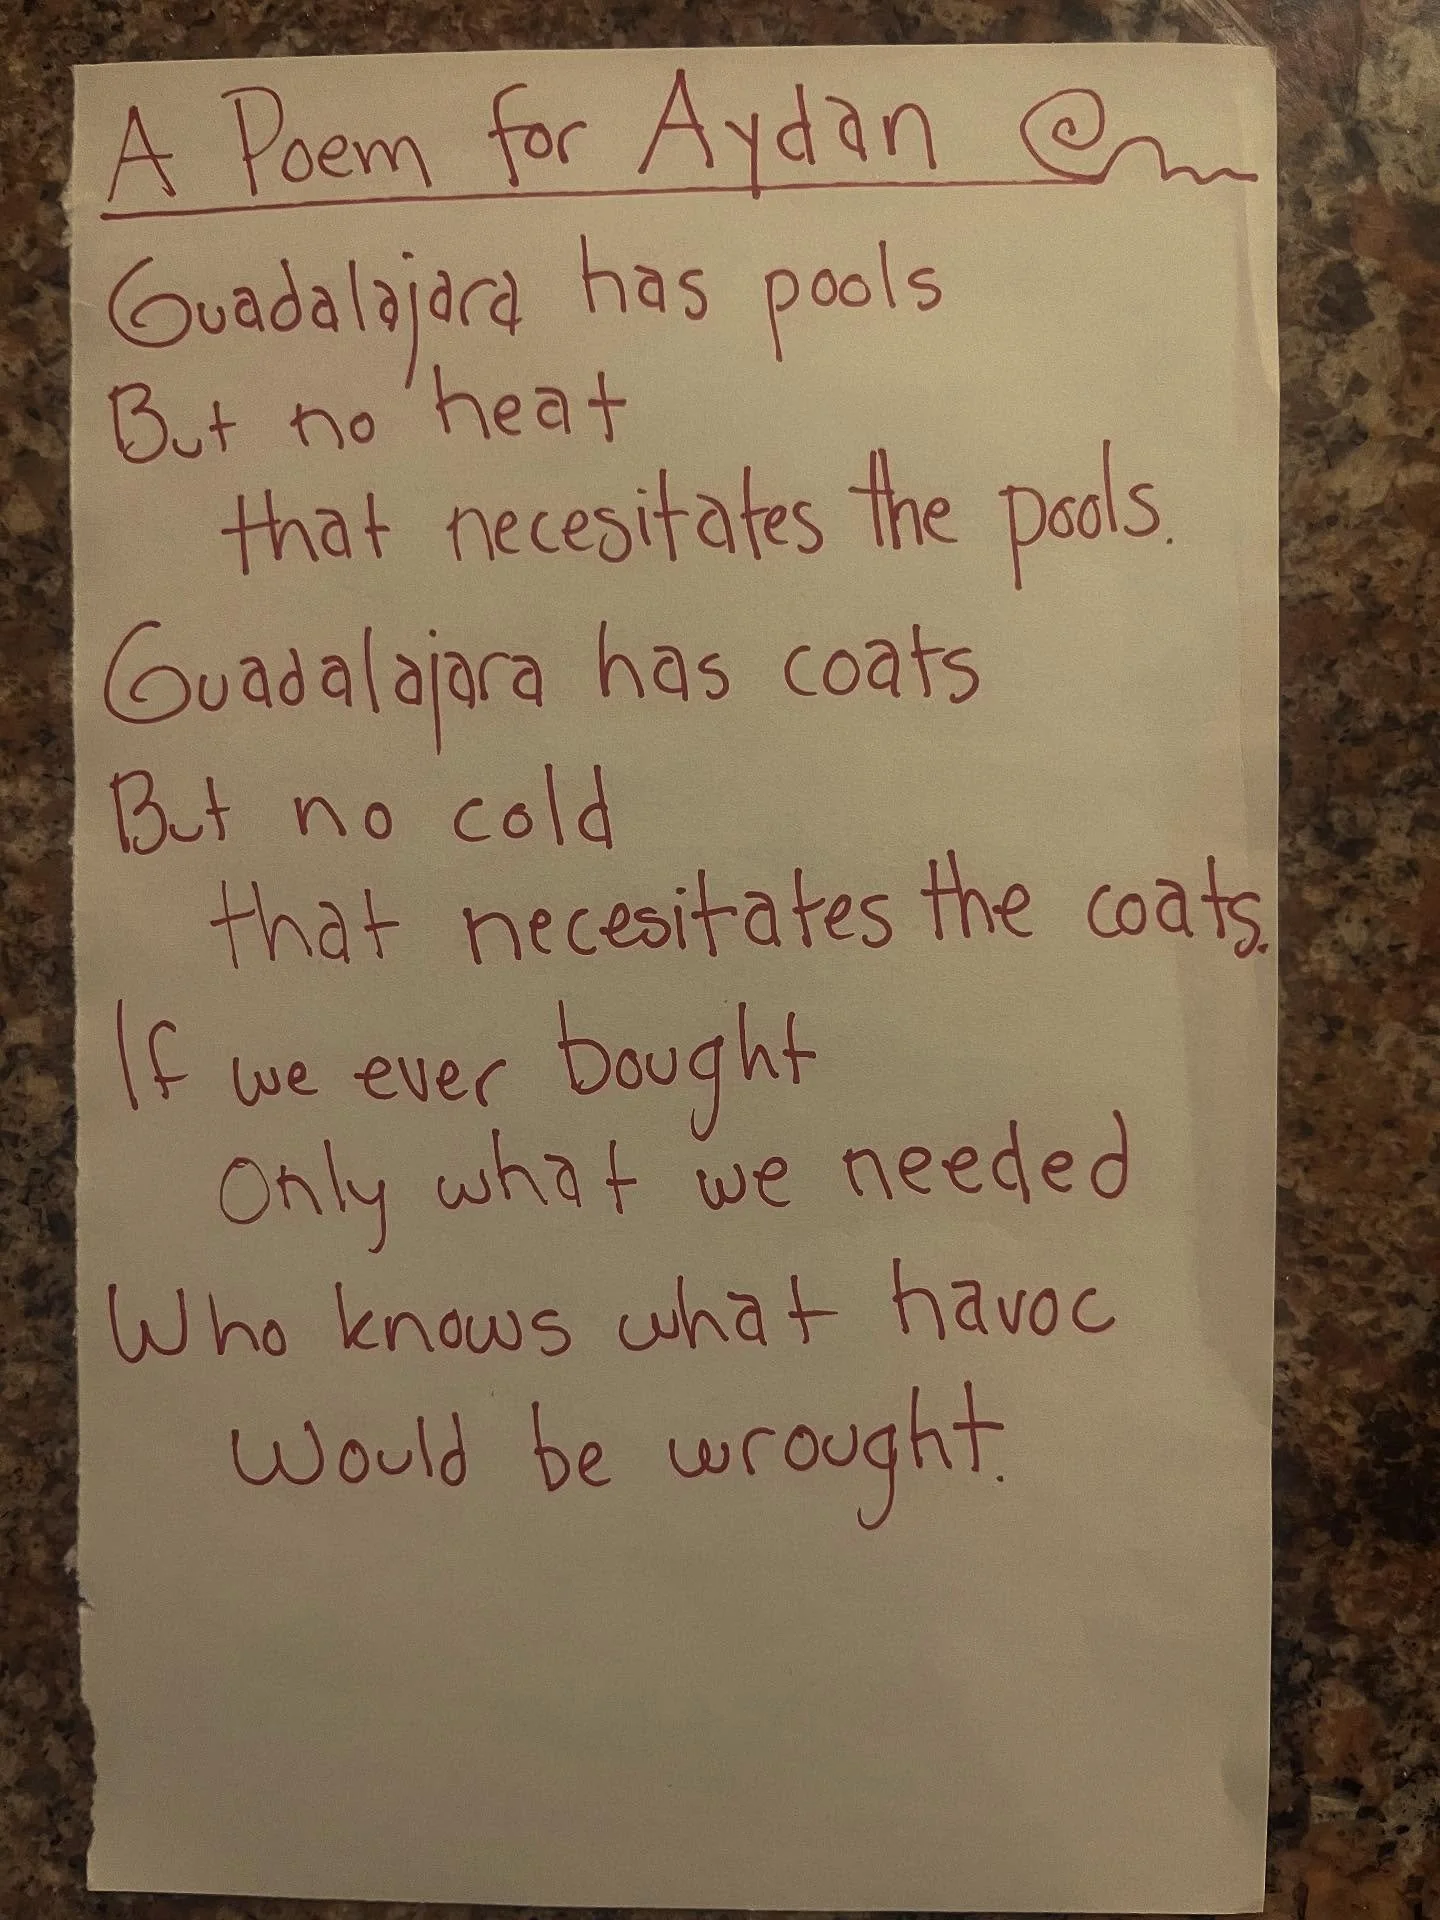 A Poem for Aydan
Guadalajara has pools
But no heat
that necesitates the pools.
Guadalajara has coats
But no cold
that necesitates the coats.
If we ever bought
Only what we needed
Who knows what havoc
Would be wrought.